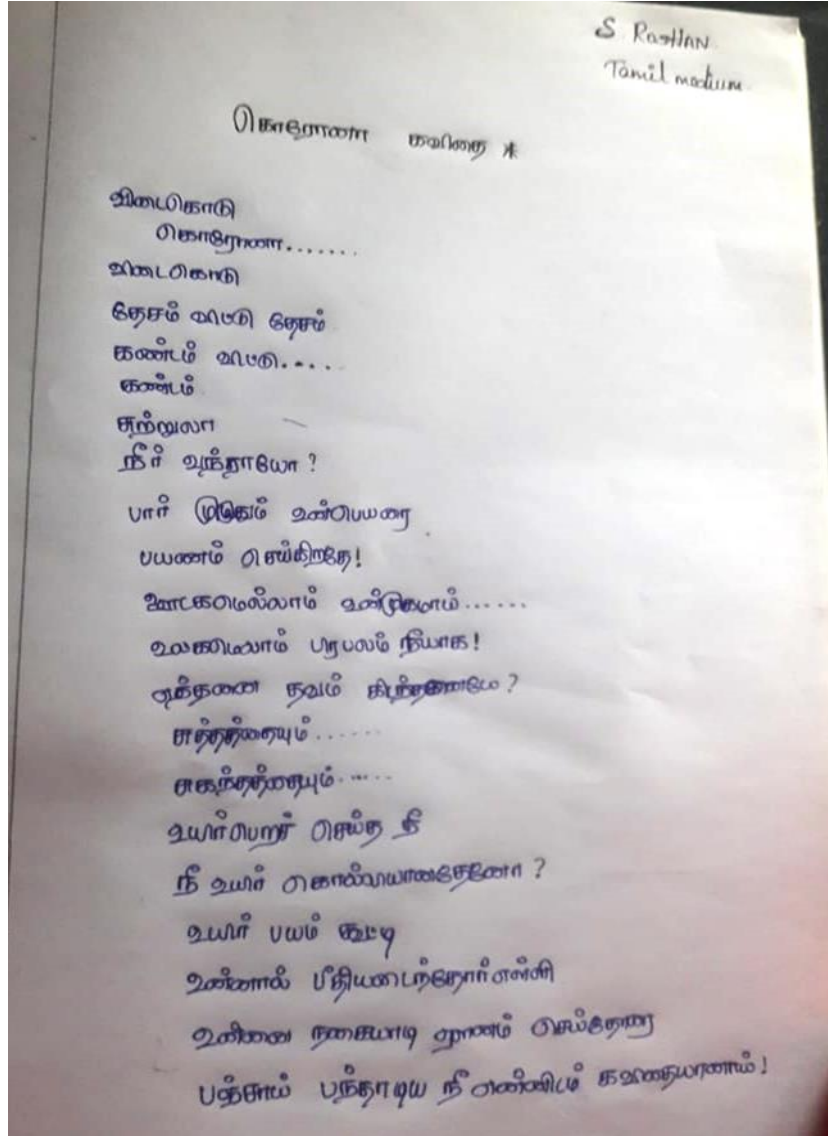 S. Roshan
Tamil medium
கொரோனா கவிதை *
விடைகொடு
கொரோனா.......
விடைகொடு
தேசம் விட்டு தேசம்
கண்டம் விட்டு.....
கண்டம்
சுற்றுலா
நீர் வந்தாயோ?
பார் முழுதும் உன்பெயரை
பயணம் செய்கிறதே!
ஊடகமெல்லாம்
உலகமெலாம் பிரபலம் நீயாக!
எத்தனை தவம்
சுத்தத்தையும்.......
சுகந்தத்தையும்.....
உயிர்பெறச் செய்த நீ
நீ உயிர் கொல்லியானதேனோ?
உயிர் பயம் கூட்டி
உன்னால் பீதியடைந்தோர் எண்ணி
உன்னை நகையாடி ஏளனம் செய்தோரை
பஞ்சாய் பந்தாடிய நீ என்னிடம் கவிதையானாய்!